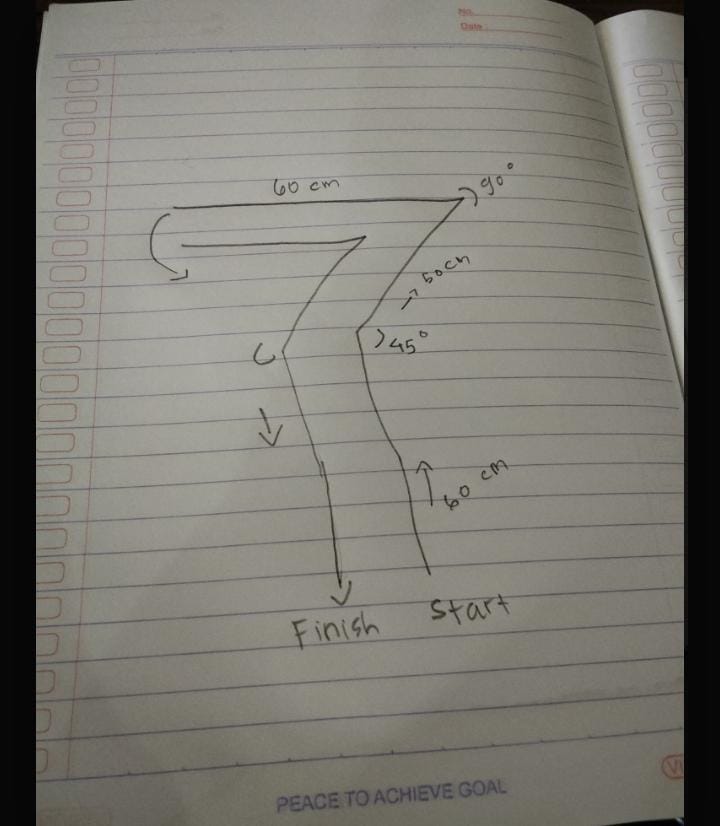 No.
Date :
60 cm
90°
50cm
45°
60 cm
Finish
Start
PEACE TO ACHIEVE GOAL
VI